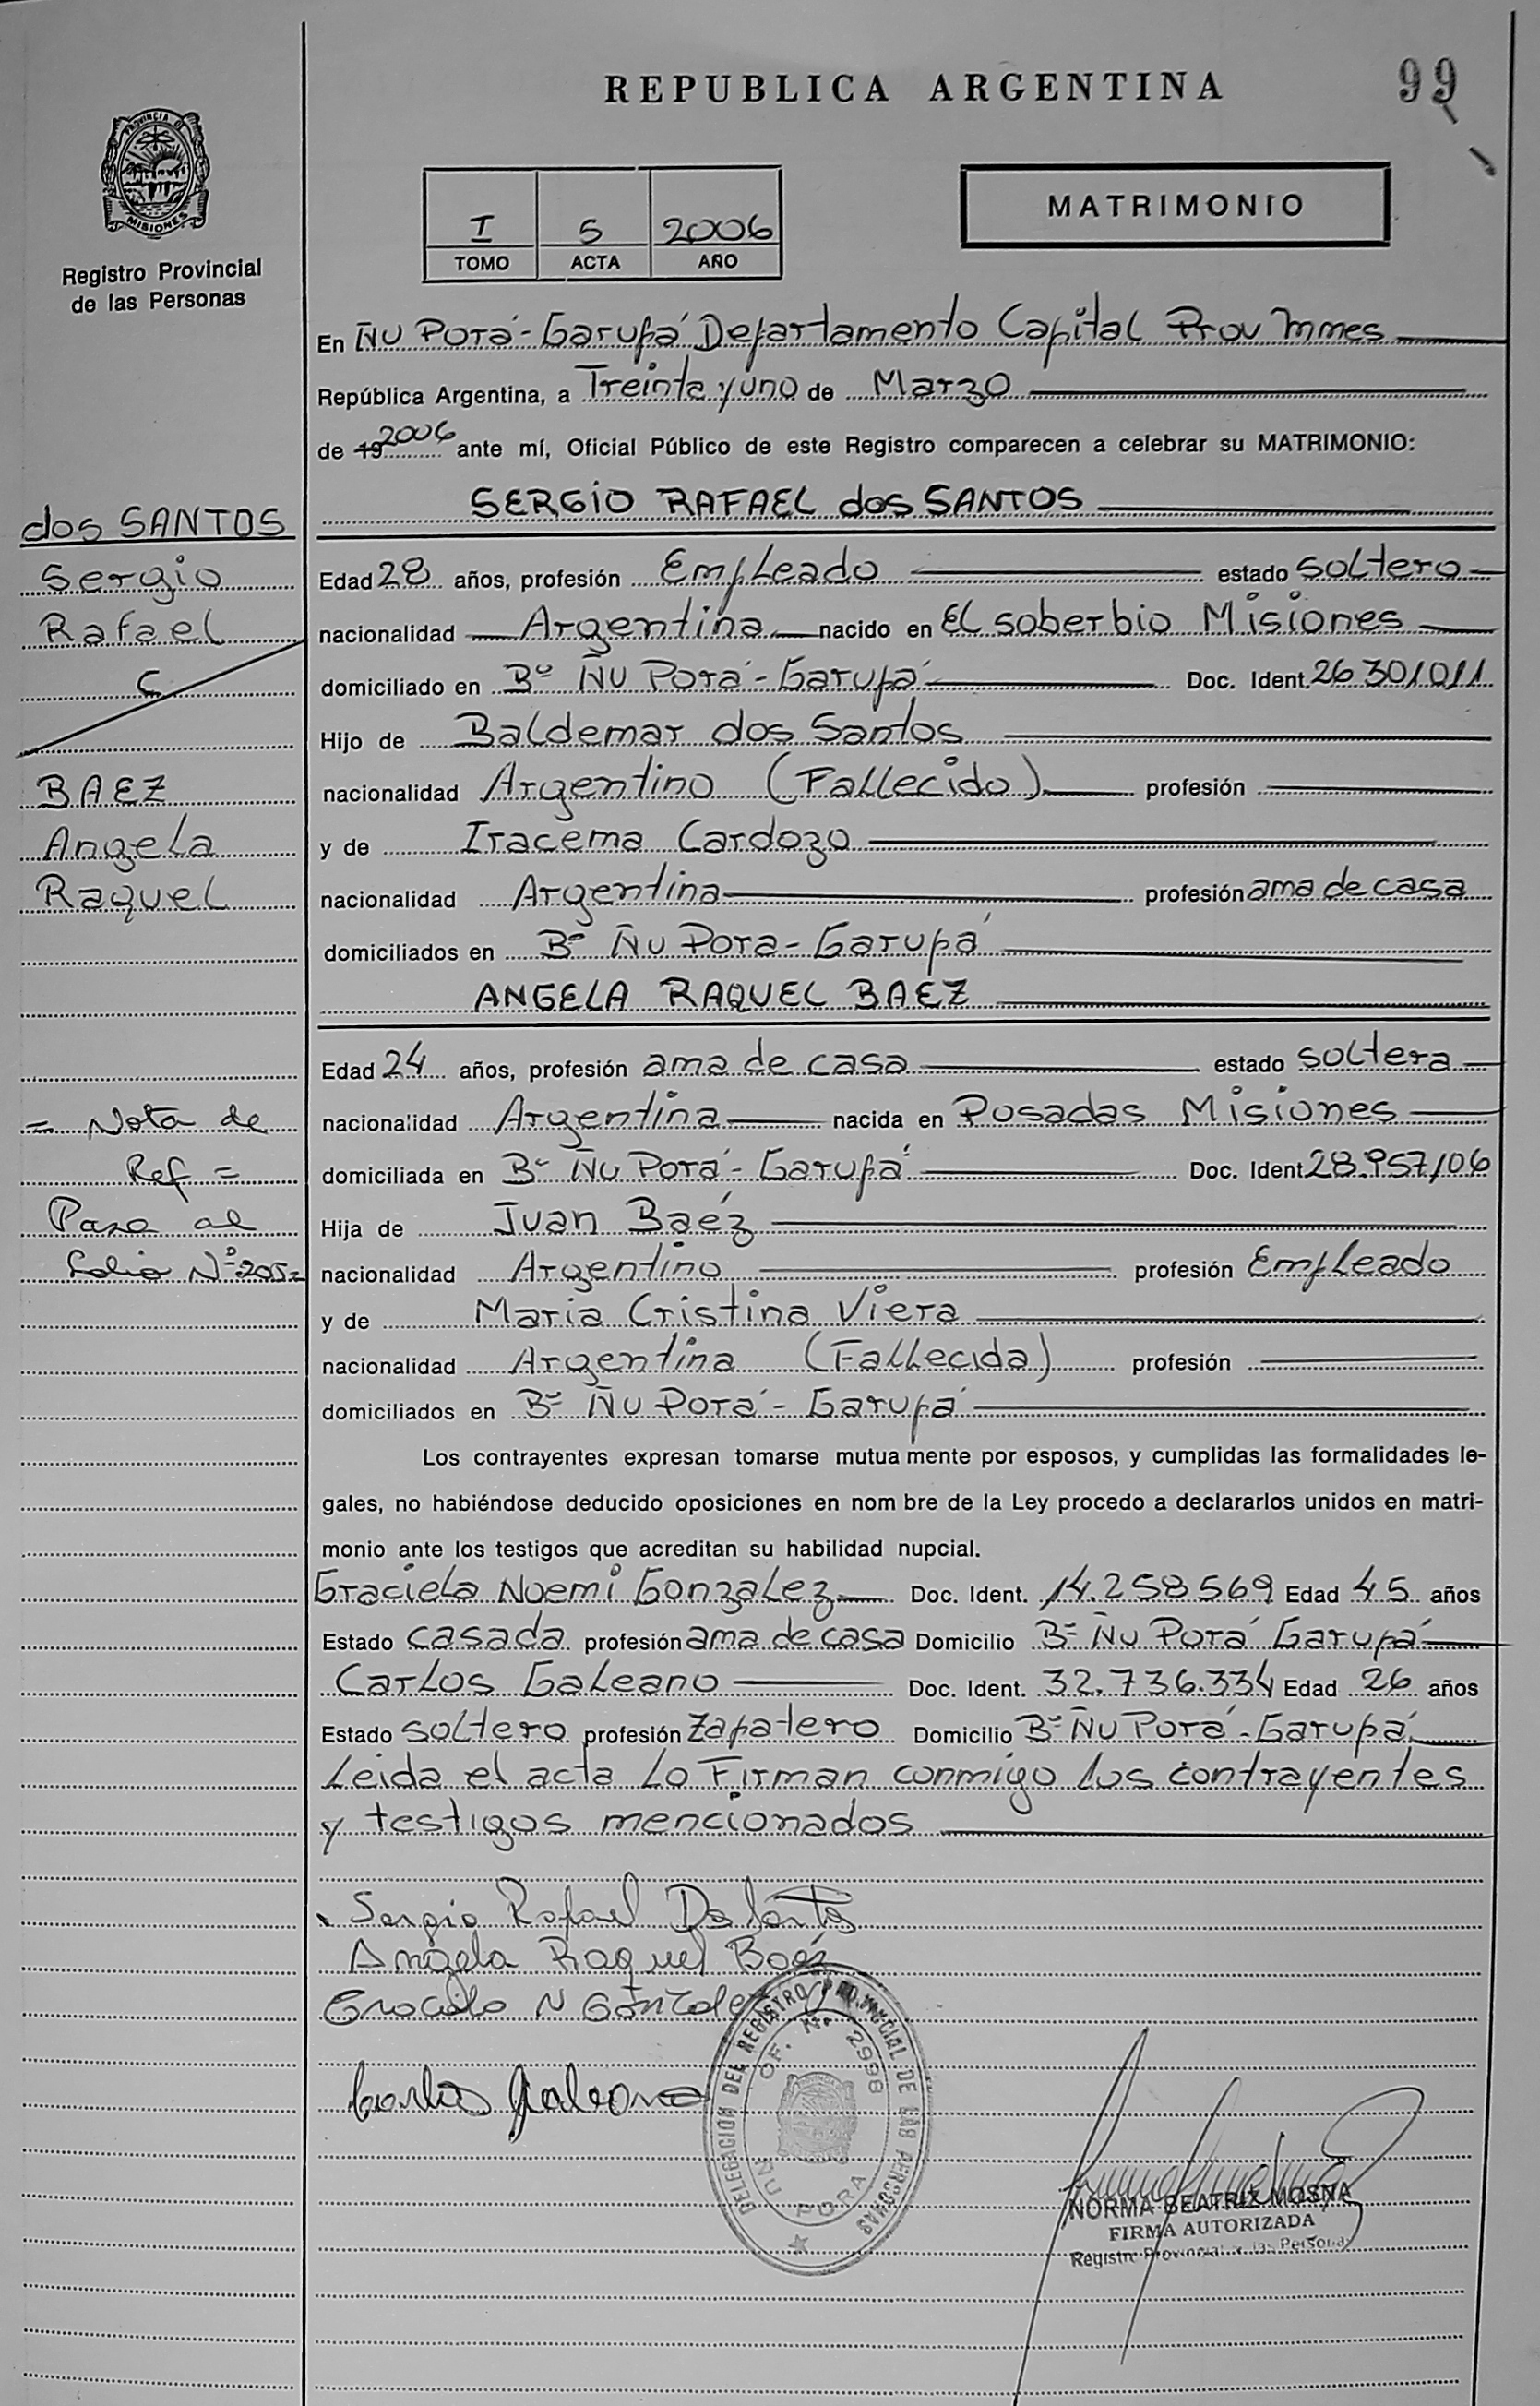 REPUBLICA ARGENTINA
99
PROVINCIA DE
MISIONES
Registro Provincial
de las Personas
I 5 2006
TOMO ACTA AÑO
MATRIMONIO
En Ñu Porá - Garupá Departamento Capital Prov Mnes
República Argentina, a Treinta y uno de Marzo
de 19 2006 ante mí, Oficial Público de este Registro comparecen a celebrar su MATRIMONIO:
SERGIO RAFAEL dos SANTOS
dos SANTOS
Sergio
Rafael
C
BAEZ
Angela
Raquel
= Nota de
Ref =
Pasa al
folio Nº 205=
Edad 28 años, profesión Empleado estado soltero
nacionalidad Argentina nacido en El soberbio Misiones
domiciliado en Bº Ñu Porá - Garupá Doc. Ident. 26301011
Hijo de Baldemar dos Santos
nacionalidad Argentino (Fallecido) profesión
y de Iracema Cardozo
nacionalidad Argentina profesión ama de casa
domiciliados en Bº Ñu Pora - Garupá
ANGELA RAQUEL BAEZ
Edad 24 años, profesión ama de casa estado soltera
nacionalidad Argentina nacida en Posadas Misiones
domiciliada en Bº Ñu Porá - Garupá Doc. Ident. 28.957106
Hija de Juan Baéz
nacionalidad Argentino profesión Empleado
y de Maria Cristina Viera
nacionalidad Argentina (Fallecida) profesión
domiciliados en Bº Ñu Porá - Garupá
Los contrayentes expresan tomarse mutua mente por esposos, y cumplidas las formalidades le-
gales, no habiéndose deducido oposiciones en nom bre de la Ley procedo a declararlos unidos en matri-
monio ante los testigos que acreditan su habilidad nupcial.
Graciela Noemi Gonzalez Doc. Ident. 14.258569 Edad 45 años
Estado casada profesión ama de casa Domicilio Bº Ñu Porá Garupá
Carlos Galeano Doc. Ident. 32.736.334 Edad 26 años
Estado soltero profesión Zapatero Domicilio Bº Ñu Porá - Garupá
Leida el acta Lo Firman conmigo los contrayentes
y testigos mencionados
Sergio Rafael Do Santos
Angela Raquel Baéz
Graciela N Gónzalez
Carlos Galeano
DELEGACION DEL REGISTRO PROVINCIAL DE LAS PERSONAS
OF. Nº 2998
ÑU PORA
NORMA BEATRIZ MOSNA
FIRMA AUTORIZADA
Registro Provincial de las Personas